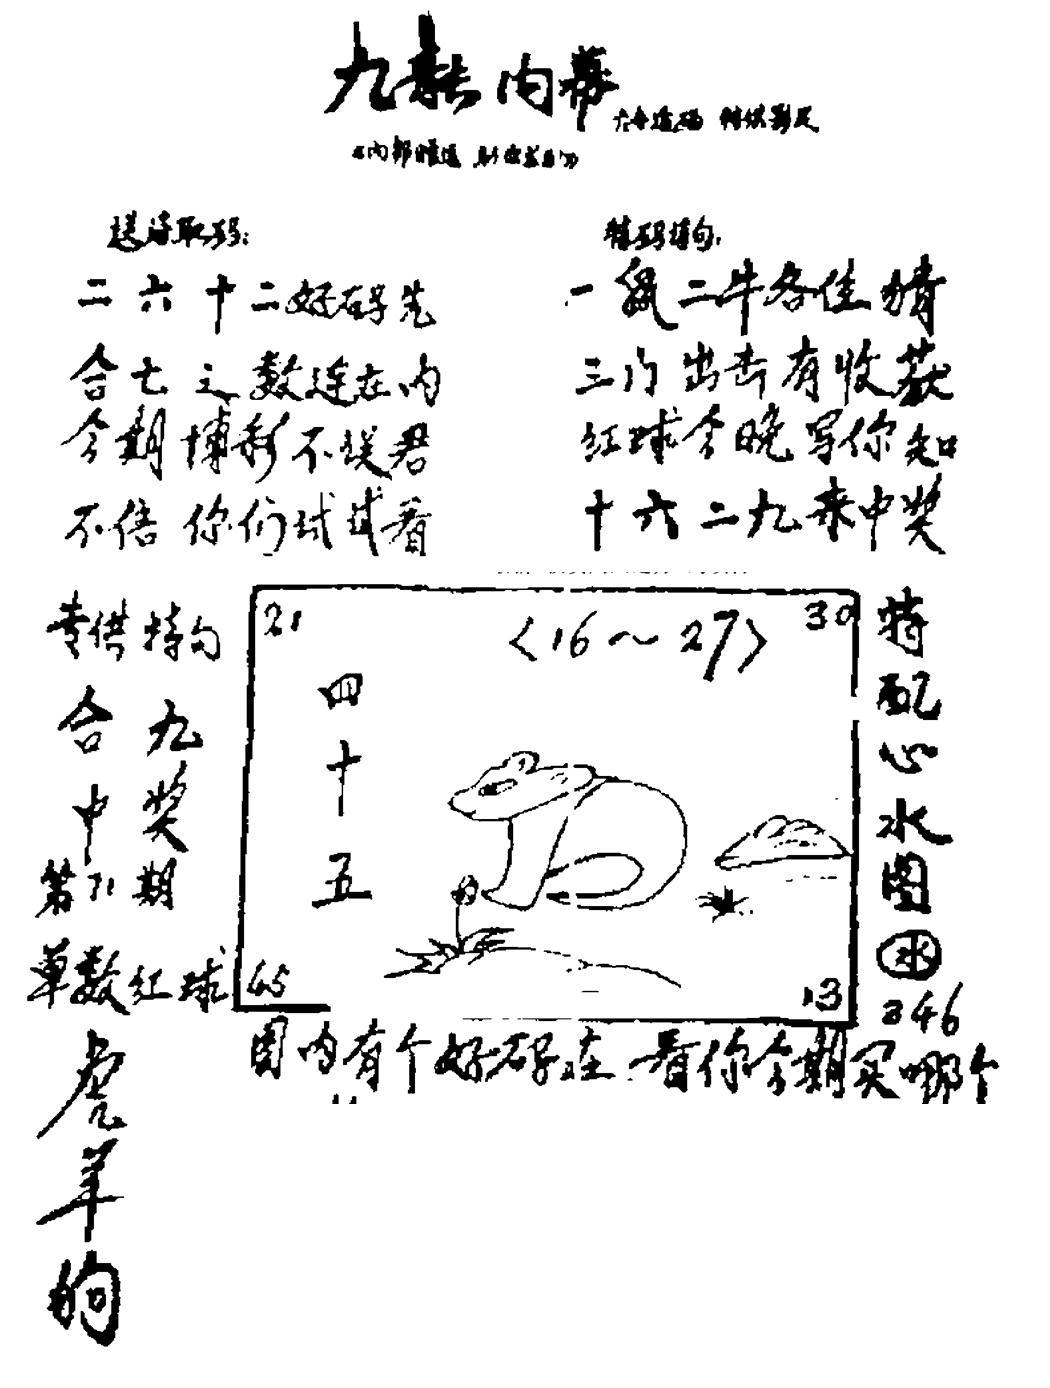 九龙内幕
六合透码
送诗取码：
二六十二好码先
合七之数连在内
今期博彩不误君
不信你们试试看
特码诗句：
一鼠二牛各佳猜
三门出击有收获
红球今晚写你知
十六二九来中奖
专供特句
合九
中奖
第71期
单数红球
虎
羊
狗
21
30
〈16～27〉
四十五
45
13
特配心水图
水
246
图内有个好码在 看你今期买哪个